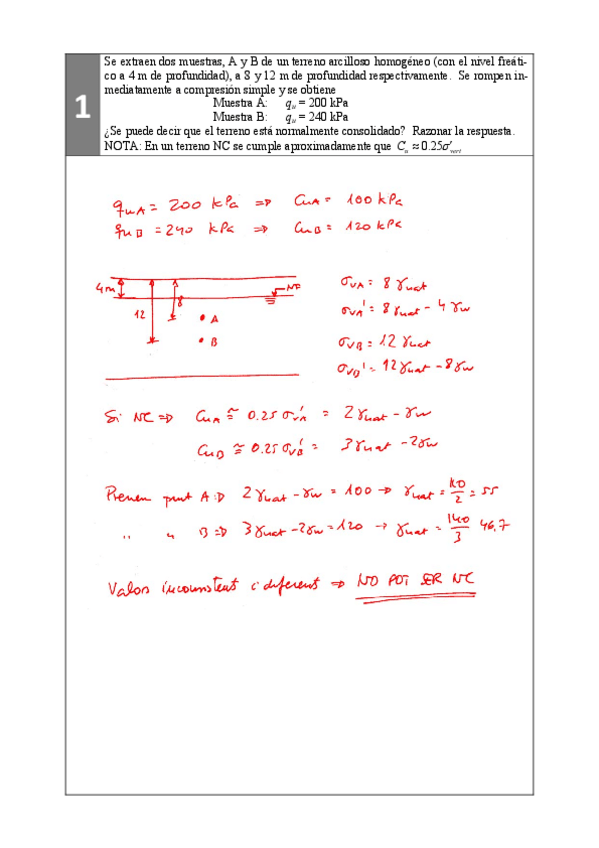 1
Se extraen dos muestras, A y B de un terreno arcilloso homogéneo (con el nivel freáti-
co a 4 m de profundidad), a 8 y 12 m de profundidad respectivamente. Se rompen in-
mediatamente a compresión simple y se obtiene
Muestra A: qᵤ = 200 kPa
Muestra B: qᵤ = 240 kPa
¿Se puede decir que el terreno está normalmente consolidado? Razonar la respuesta.
NOTA: En un terreno NC se cumple aproximadamente que Cᵤ ≈ 0.25σ'vert
quA = 200 kPa => CuA = 100 kPa
quB = 240 kPa => CuB = 120 kPa
4m
12
8
NF
A
B
σVA = 8 γnat
σVA' = 8 γnat - 4 γw
σVB = 12 γnat
σVB' = 12 γnat - 8 γw
Si NC => CuA ≅ 0.25 σVA' = 2 γnat - γw
CuB ≅ 0.25 σVB' = 3 γnat - 2γw
Prenem punt A => 2 γnat - γw = 100 → γnat = 110/2 = 55
" " B => 3 γnat - 2γw = 120 → γnat = 140/3 46,7
Valors inconsistents i diferents => NO POT SER NC